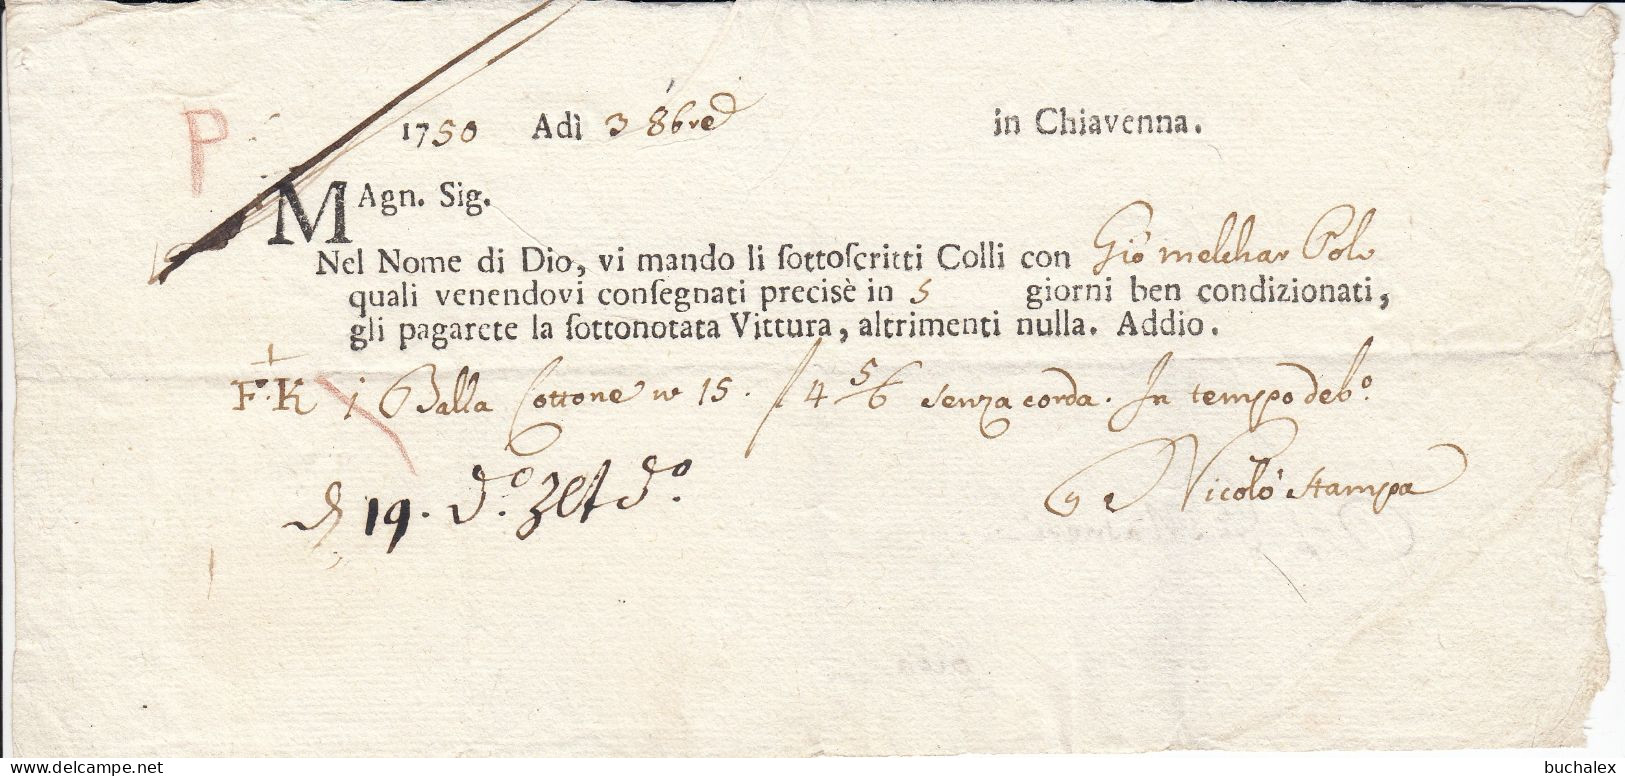 P
1750 Adì 3 8bre in Chiavenna.
MAgn. Sig.
Nel Nome di Dio, vi mando li ſottoſcritti Colli con Giò melchar Pol
quali venendovi conſegnati preciſè in 5 giorni ben condizionati,
gli pagarete la ſottonotata Vittura, altrimenti nulla. Addio.
F. K 1 Balla Cottone 15. 4 5/6 senza corda. In tempo deb.º
Nicolò Stampa
19. d.º d.º
buchalex